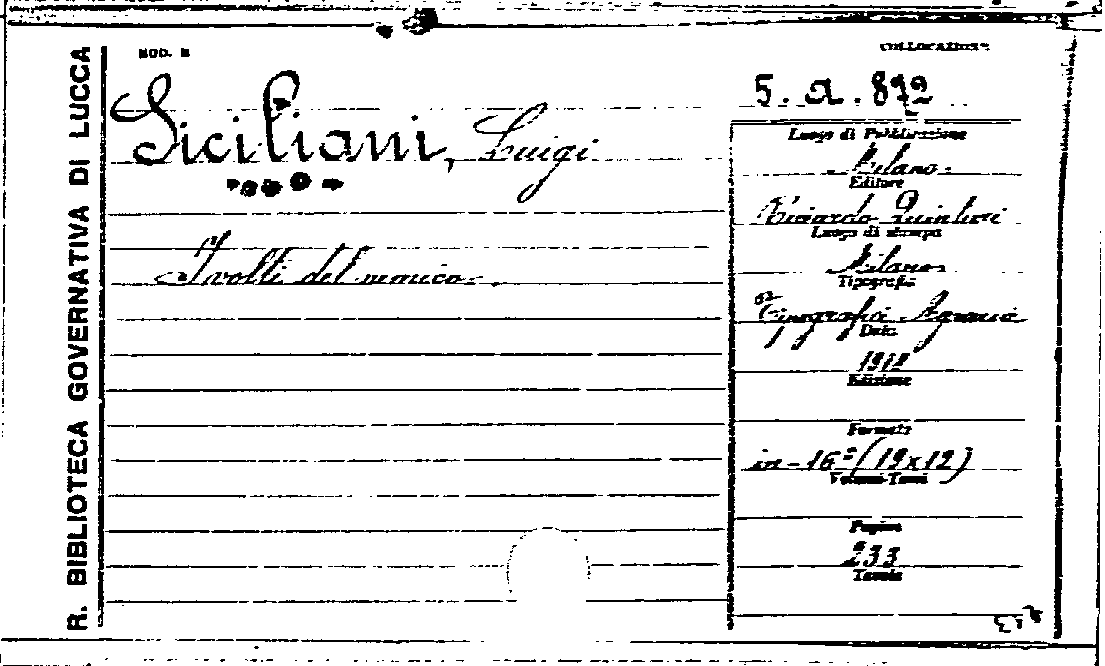 R. BIBLIOTECA GOVERNATIVA DI LUCCA
MOD. B
COLLOCAZIONE
5. a. 892
Siciliani, Luigi
I volti del nemico.
Luogo di Pubblicazione
Milano.
Editore
Riccardo Quintieri
Luogo di stampa
Milano
Tipografia
Tipografia Agraria
Data
1912
Edizione
Formato
in-16° (19x12)
Volumi-Tomi
Pagine
233
Tavole